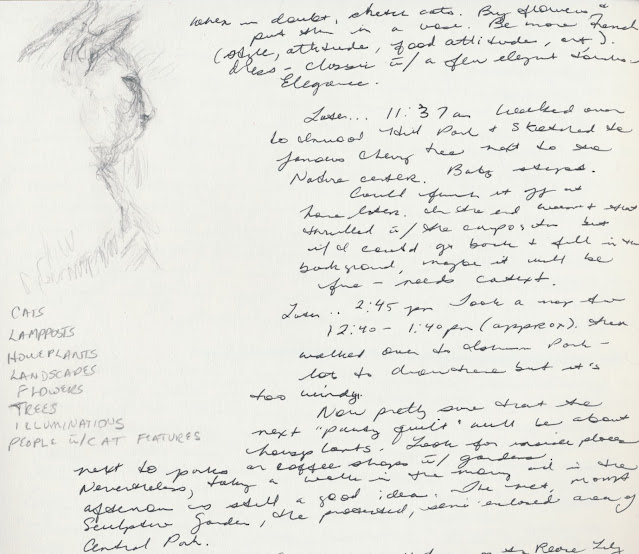 when in doubt, sketch cats. Buy flowers &
put them in a vase. Be more French
(style, attitude, food attitude, art).
dress - classic w/ a few elegant
Elegance.
Later... 11:37 am Walked over
to Inwood Hill Park & sketched the
famous cherry tree next to the
Nature center. Baby steps.
Could finish it off at
home later. In the end wasn't that
thrilled w/ the composition but
if I could go back & fill in the
background, maybe it will be
fine - needs context.
Later.. 2:45 pm Took a nap from
12:40 - 1:40 pm (approx). then
walked over to Park -
lot to draw there but it's
too windy.
Now pretty sure that the
next "pansy quilt" will be about
houseplants. Look for inside places
next to parks or coffee shops w/ gardens.
Nevertheless, taking a walk in the morning and in the
afternoon is still a good idea. The met, MOMA
Sculpture Garden, the protected, semi-enclosed area of
Central Park.
CATS
LAMPPOSTS
HOUSEPLANTS
LANDSCAPES
FLOWERS
TREES
ILLUMINATIONS
PEOPLE w/CAT FEATURES